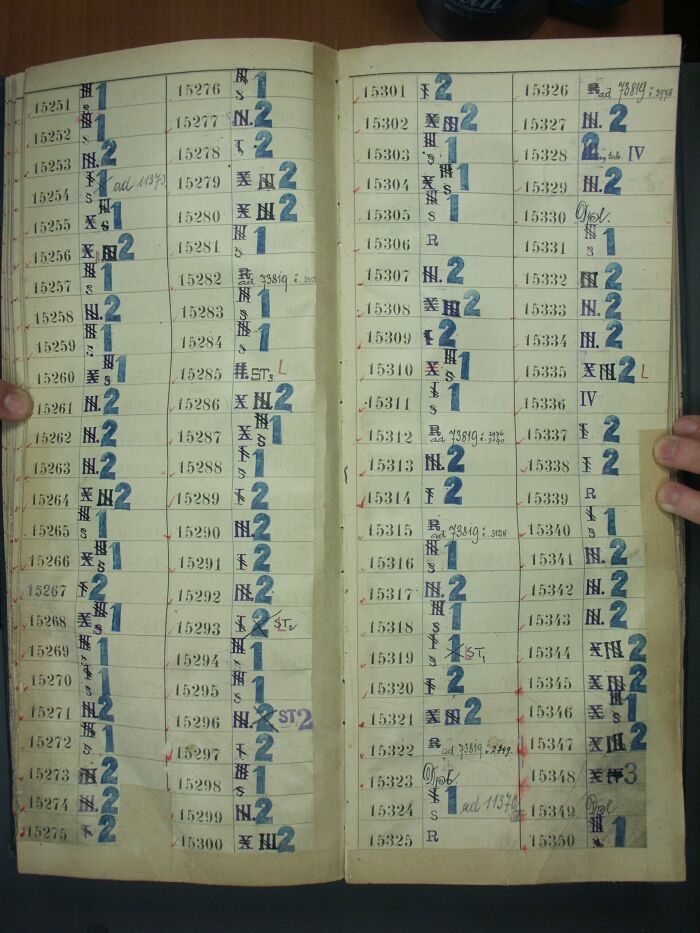 15251 III s 1
15252 III s 1
15253 III. 2
15254 I s 1 ad 11370
15255 X III s 1
15256 X III 2
15257 III s 1
15258 III. 2
15259 III s 1
15260 X III s 1
15261 III. 2
15262 III. 2
15263 III. 2
15264 X III 2
15265 III s 1
15266 X III s 1
15267 I 2
15268 X III s 1
15269 III s 1
15270 I s 1
15271 III. 2
15272 III s 1
15273 III 2
15274 III. 2
15275 I 2
15276 III s 1
15277 III. 2
15278 I 2
15279 X III 2
15280 X III 2
15281 III s 1
15282 R ad 73819 i.
15283 III s 1
15284 III s 1
15285 II. ST3 L
15286 X III. 2
15287 X III s 1
15288 I s 1
15289 I 2
15290 III. 2
15291 I 2
15292 III. 2
15293 I 2 ST2
15294 III s 1
15295 III s 1
15296 III. 2 ST2
15297 I 2
15298 III s 1
15299 III. 2
15300 X III 2
15301 I 2
15302 X III 2
15303 III s 1
15304 X III s 1
15305 III s 1
15306 R
15307 III. 2
15308 X III 2
15309 I 2
15310 X III s 1
15311 I s 1
15312 R ad 73819 i. 2976 3140
15313 III. 2
15314 I 2
15315 R ad 73819 i. 3128
15316 III s 1
15317 III. 2
15318 III s 1
15319 I s 1 ST1
15320 I 2
15321 X III 2
15322 R ad 73819 i. 2749
15323
15324 I s 1 ad 11370
15325 R
15326 R ad 73819 i. 2978
15327 III. 2
15328 2 IV
15329 III. 2
15330
15331 III s 1
15332 III 2
15333 III. 2
15334 III. 2
15335 X III 2 L
15336 IV
15337 I 2
15338 I 2
15339 R
15340 I s 1
15341 III. 2
15342 III. 2
15343 III. 2
15344 X III 2
15345 X III 2
15346 X III s 1
15347 X III 2
15348 X 3
15349
15350 III s 1